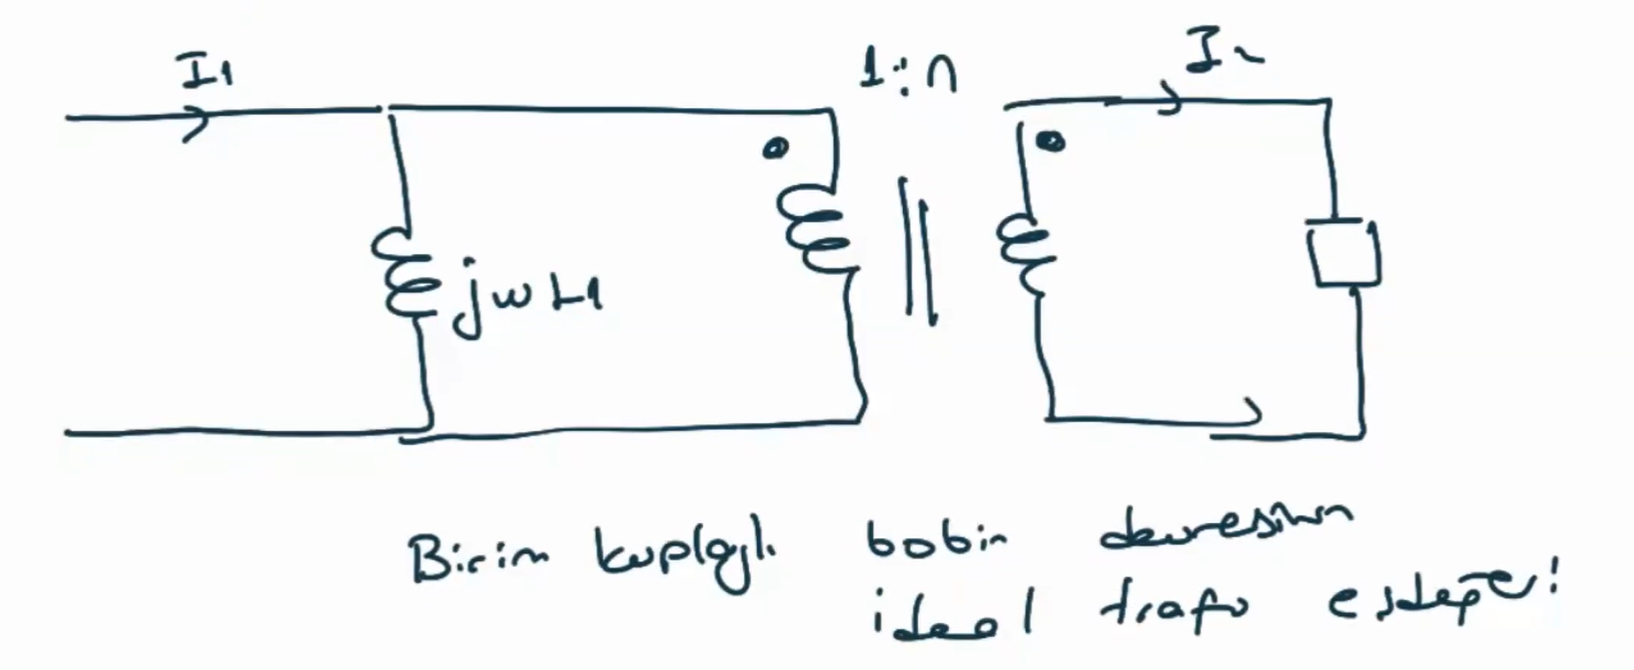 I1
1:n
I2
jwL1
Birim kuplajlı bobin devresinin
ideal trafo eşdeğeri